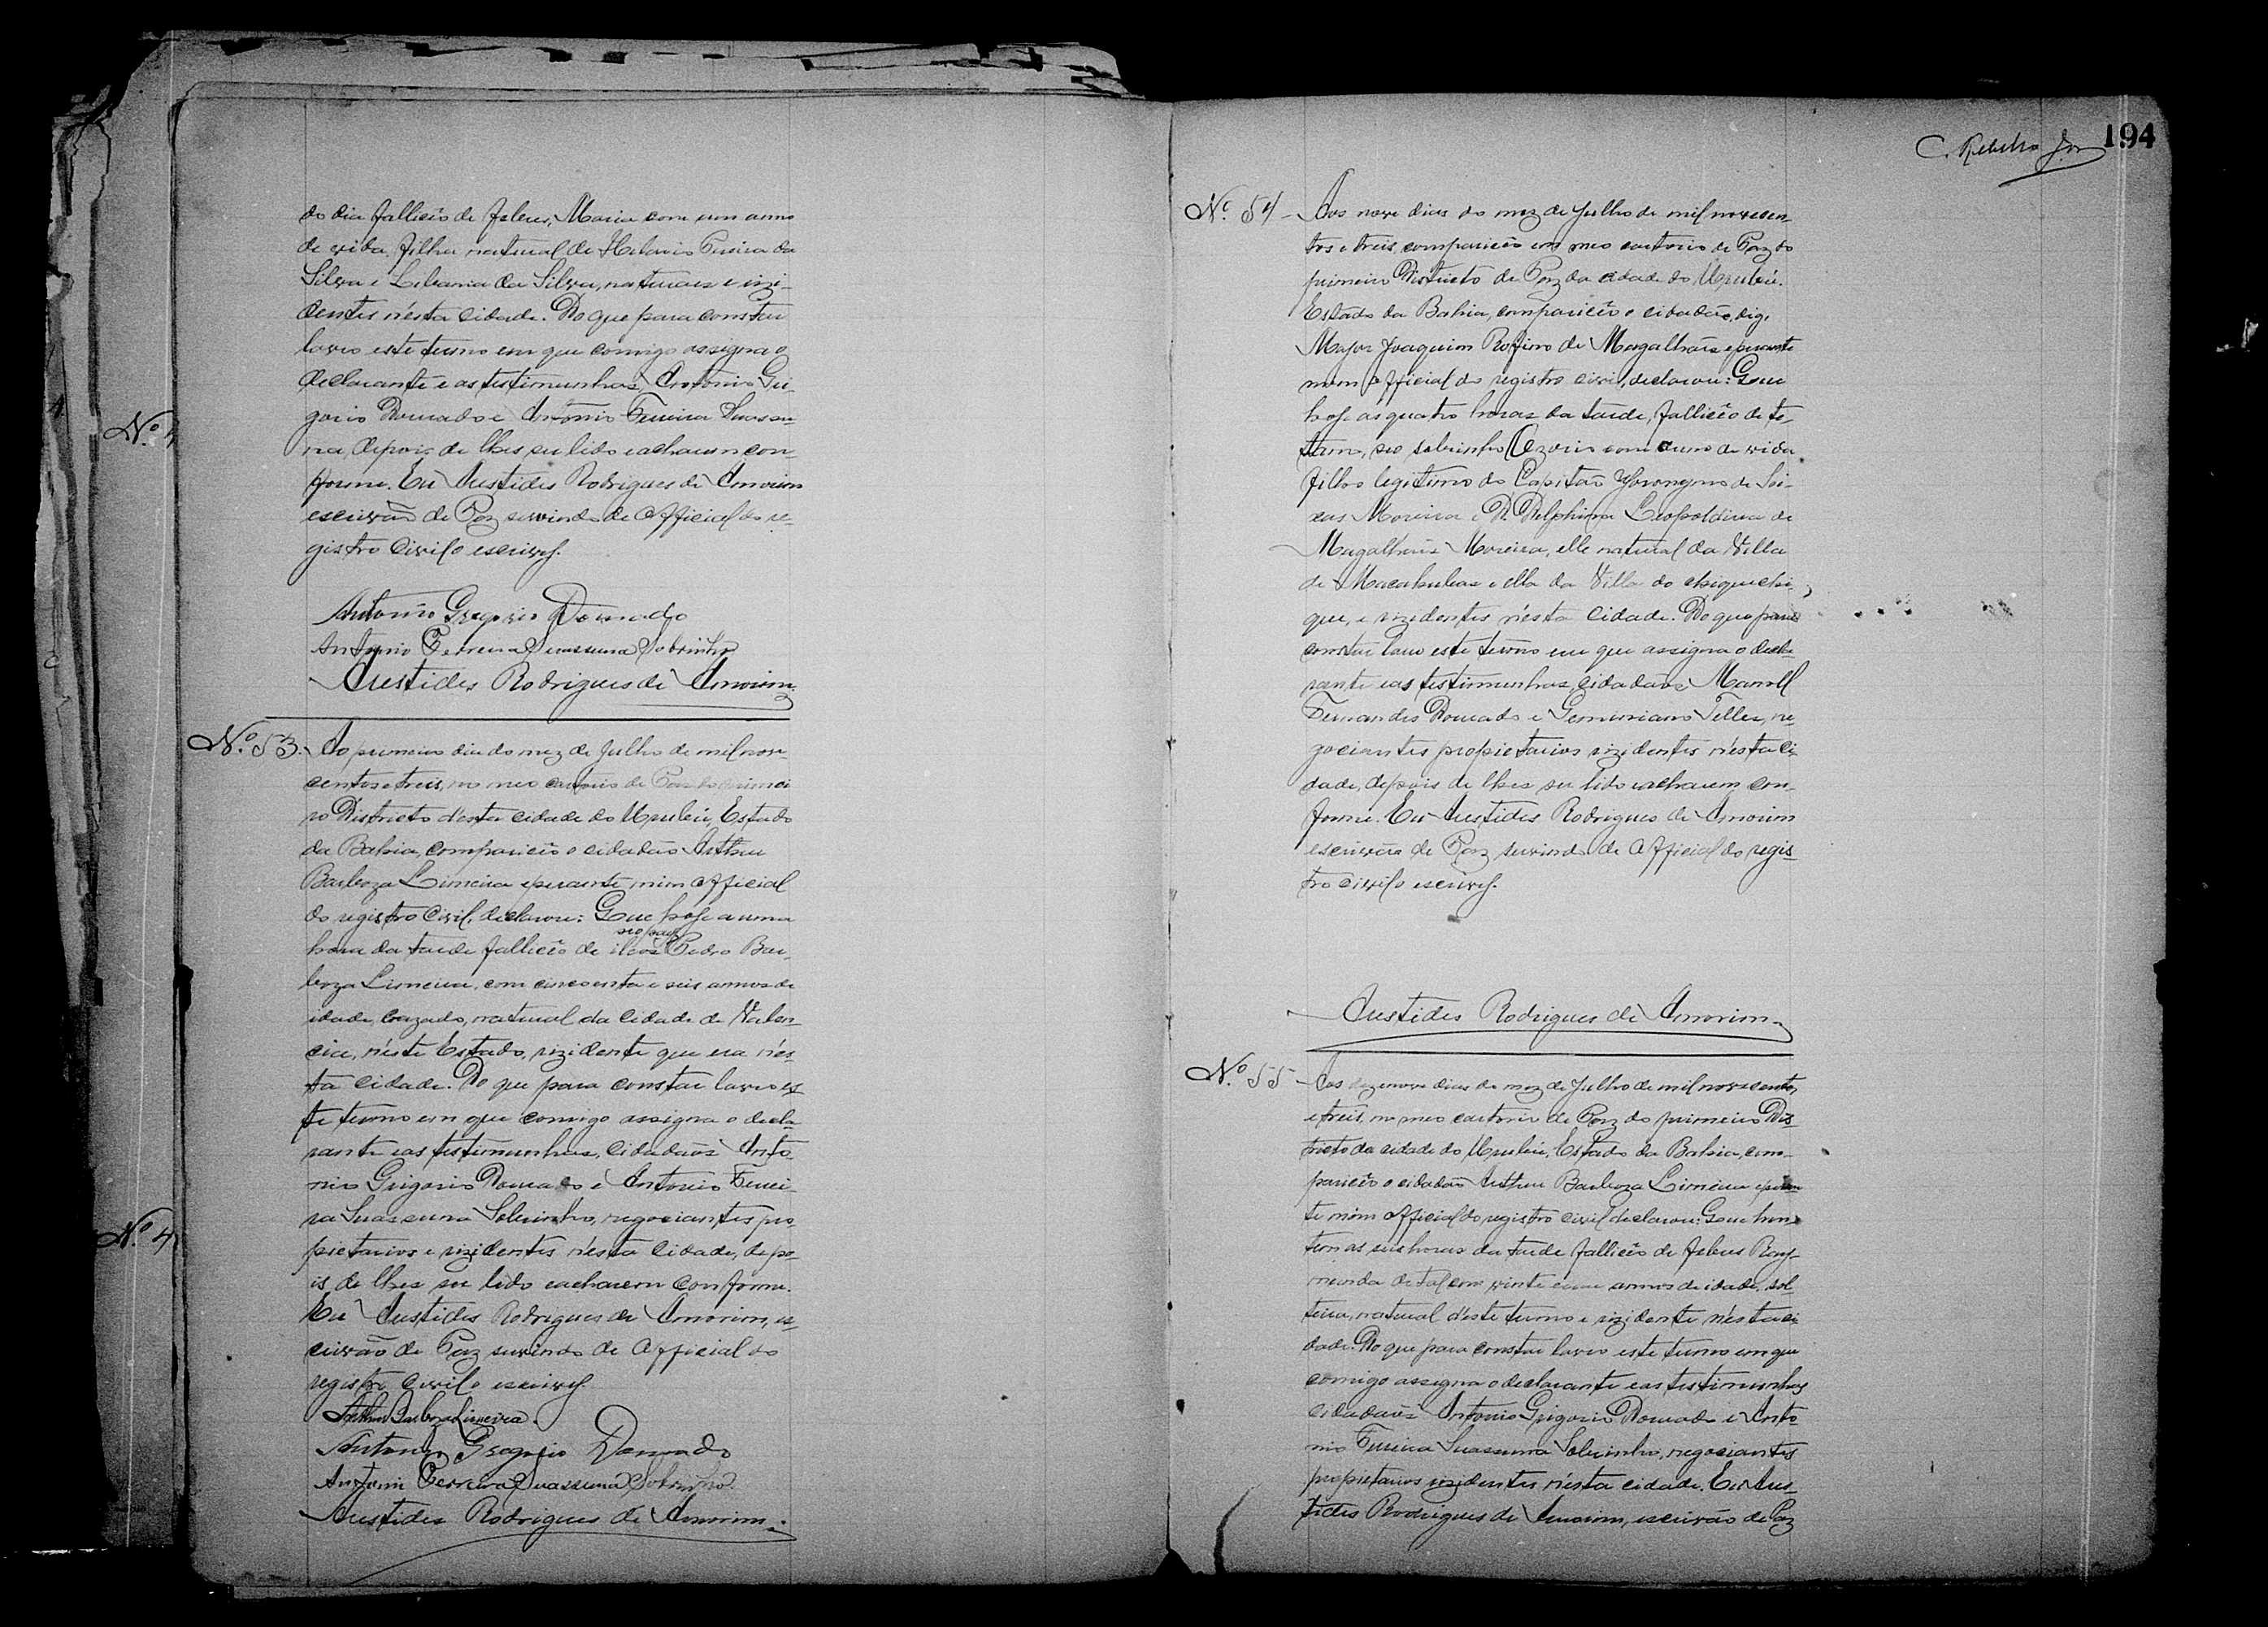 do dia falleceo de febres, Maria com um anno
de vida, filha natural de Hilario Pereira da
Silva e Libania da Silva, naturaes e rizi-
dentes n'ésta Cidade. Do que para constar
lavro este termo em que comigo assigna o
declarante e as testimunhas, Antonio Gri-
gorio Dourado e Antonio Ferreira Suassu-
na, depois de lhes ser lido e acharem con-
forme. Eu Aristides Rodrigues de Amorim
escrivão de Paz servindo de Official do re-
gistro Civil o escrevy.
Antonio Gregorio Dourado
Antonio Ferreira Suassuna Sobrinho
Aristides Rodrigues de Amorim
Nº 53. Ao primeiro dia do mez de Julho de mil nove
centos e treis, no meo cartorio de Paz do primei
ro Districto d'esta cidade do Urubú, Estado
da Bahia, compariceo o cidadão Arthur
Barboza Limeira e perante mim Official
do registro Civil, declarou: Que hoje a uma
seo pay
hora da tarde falleceo de Pedro Bar-
boza Limeira, com cincoenta e seis annos de
idade, cazado, natural da Cidade de Valen-
cia, n'éste Estado, rizidente que era n'és-
ta Cidade. Do que para constar lavro es-
te termo em que comigo assigna o decla-
rante e as testimunhas, Cidadãos Anto-
nio Grigorio Dourado e Antonio Ferrei-
ra Suassuna Sobrinho, negociantes pro-
prietarios e rizidentes n'ésta Cidade, depo-
is de lhes ser lido e acharem conforme.
Eu Aristides Rodrigues de Amorim, es-
crivão de Paz servindo de Official do
registro Civil o escrevy.
Arthur Barboza Limeira.
Antonio Gregorio Dourado
Antonio Ferreira Suassuna Sobrinho.
Aristides Rodrigues de Amorim.
194
Nº 54 - Aos nove dias do mez de Julho de mil novecen-
tos e treis, compariceo em meo cartorio de Paz do
primeiro Districto de Paz da cidade do Urubú.
Estado da Bahia, compariceo o cidadão, digo
Major Joaquim Rofino de Magalhães e perante
mim Official do registro civil, declarou: Que
hoje ás quatro horas da tarde, falleceo de te-
tano, seo sobrinho Cezario com anno de vida
filho legitimo do Capitão Jeronymo de Soi-
zas Moreira e D. Delphina Leopoldina de
Magalhães Moreira, elle natural da Villa
de Macahubas e ella da Villa do Chiquechi-
que, e rizidentes n'ésta Cidade. Do que para
constar lavro este termo em que assigna o decla-
rante e as testimunhas, Cidadãos Manoel
Fernandes Dourado e Geminiano Telles, ne-
gociantes propietarios rizidentes n'ésta Ci-
dade, depois de lhes ser lido e acharem con-
forme. Eu Aristides Rodrigues de Amorim
escrivão de Paz servindo de Official do regis-
tro Civil o escrevy.
Aristides Rodrigues de Amorim
Nº 55 - Aos dezenove dias do mez de Julho de mil novecentos
e treis, no meo cartorio de Paz do primeiro Dis-
tricto da cidade do Urubú, Estado da Bahia, com-
pariceo o cidadão Arthur Barboza Limeira e peran
te mim Official do registro Civil declarou: Que hon-
tem as seis horas da tarde falleceo de febres Ray-
munda de tal com vinte e annos de idade, sol-
teira, natural d'éste termo e rizidente n'ésta ci-
dade. Do que para constar lavro este termo em que
comigo assigna o declarante e as testimunhas
cidadãos Antonio Grigorio Dourado e Anto-
nio Ferreira Suassuna Sobrinho, negociantes
propietarios rizidentes n'ésta cidade. Eu Aris-
tides Rodrigues de Amorim, escrivão de Paz